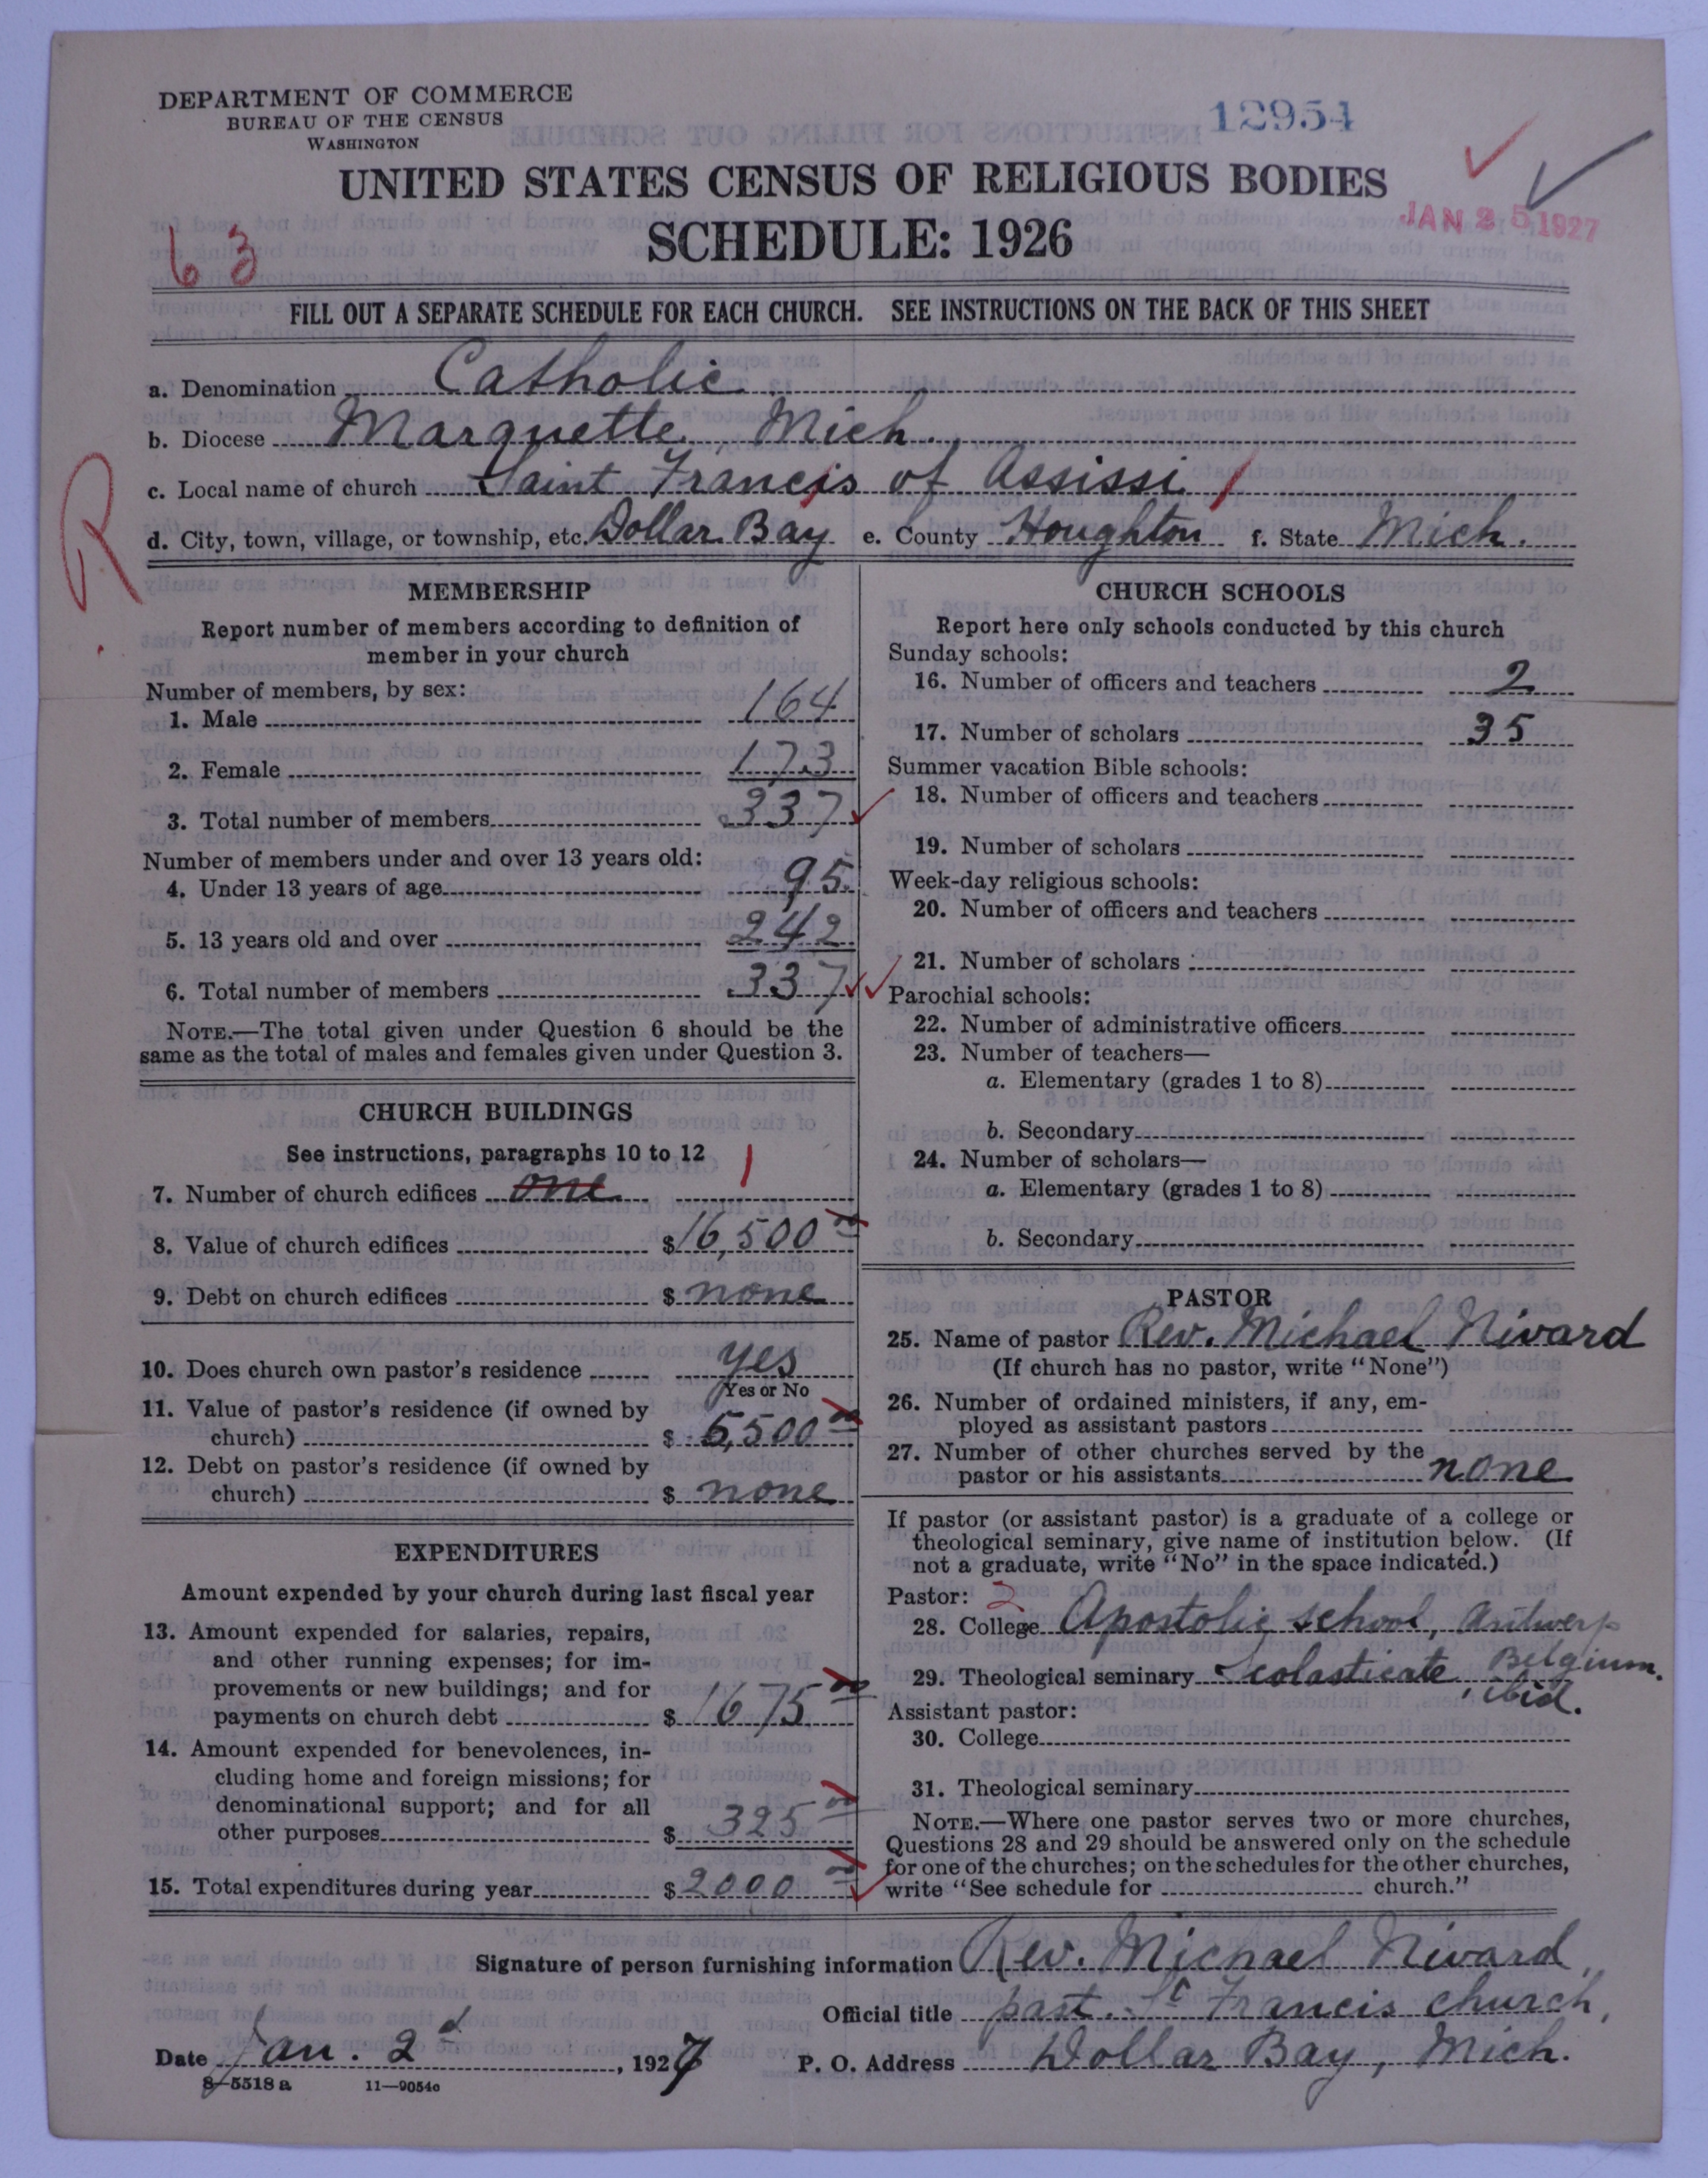 DEPARTMENT OF COMMERCE
BUREAU OF THE CENSUS
WASHINGTON
12954
UNITED STATES CENSUS OF RELIGIOUS BODIES
SCHEDULE: 1926
JAN 25 1927
63
FILL OUT A SEPARATE SCHEDULE FOR EACH CHURCH. SEE INSTRUCTIONS ON THE BACK OF THIS SHEET
a. Denomination Catholic
b. Diocese Marquette, Mich.
c. Local name of church Saint Francis of Assissi
d. City, town, village, or township, etc. Dollar Bay e. County Houghton f. State Mich.
R
MEMBERSHIP
Report number of members according to definition of
member in your church
Number of members, by sex:
1. Male 164
2. Female 173
3. Total number of members 337
Number of members under and over 13 years old:
4. Under 13 years of age 95
5. 13 years old and over 242
6. Total number of members 337
NOTE.—The total given under Question 6 should be the
same as the total of males and females given under Question 3.
CHURCH BUILDINGS
See instructions, paragraphs 10 to 12
7. Number of church edifices one 1
8. Value of church edifices $16,500 00
9. Debt on church edifices $ none
10. Does church own pastor's residence yes
Yes or No
11. Value of pastor's residence (if owned by
church) $ 5,500 00
12. Debt on pastor's residence (if owned by
church) $ none
EXPENDITURES
Amount expended by your church during last fiscal year
13. Amount expended for salaries, repairs,
and other running expenses; for im-
provements or new buildings; and for
payments on church debt $ 1675 00
14. Amount expended for benevolences, in-
cluding home and foreign missions; for
denominational support; and for all
other purposes $ 325 00
15. Total expenditures during year $2000 00
CHURCH SCHOOLS
Report here only schools conducted by this church
Sunday schools:
16. Number of officers and teachers 2
17. Number of scholars 35
Summer vacation Bible schools:
18. Number of officers and teachers
19. Number of scholars
Week-day religious schools:
20. Number of officers and teachers
21. Number of scholars
Parochial schools:
22. Number of administrative officers
23. Number of teachers—
a. Elementary (grades 1 to 8)
b. Secondary
24. Number of scholars—
a. Elementary (grades 1 to 8)
b. Secondary
PASTOR
25. Name of pastor Rev. Michael Nivard
(If church has no pastor, write "None")
26. Number of ordained ministers, if any, em-
ployed as assistant pastors
27. Number of other churches served by the
pastor or his assistants none
If pastor (or assistant pastor) is a graduate of a college or
theological seminary, give name of institution below. (If
not a graduate, write "No" in the space indicated.)
Pastor: 2
28. College Apostolic school, Antwerp
Belgium.
29. Theological seminary Scolasticate, ibid.
Assistant pastor:
30. College
31. Theological seminary
NOTE.—Where one pastor serves two or more churches,
Questions 28 and 29 should be answered only on the schedule
for one of the churches; on the schedules for the other churches,
write "See schedule for church."
Signature of person furnishing information Rev. Michael Nivard
Official title past. St Francis church,
Date Jan. 2d, 1927 P. O. Address Dollar Bay, Mich.
8—5518 a 11—9054c